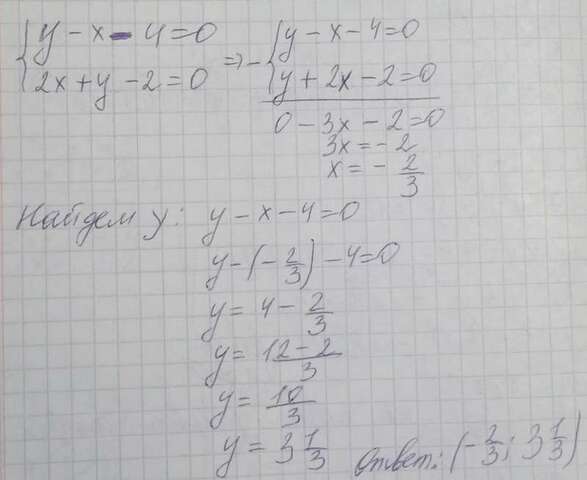 {y - x - 4 = 0 => - {y - x - 4 = 0
{2x + y - 2 = 0 {y + 2x - 2 = 0
0 - 3x - 2 = 0
3x = - 2
x = - 2/3
Найдем y: y - x - 4 = 0
y - (- 2/3) - 4 = 0
y = 4 - 2/3
y = 12 - 2/3
y = 10/3
y = 3 1/3 Ответ: (- 2/3; 3 1/3)